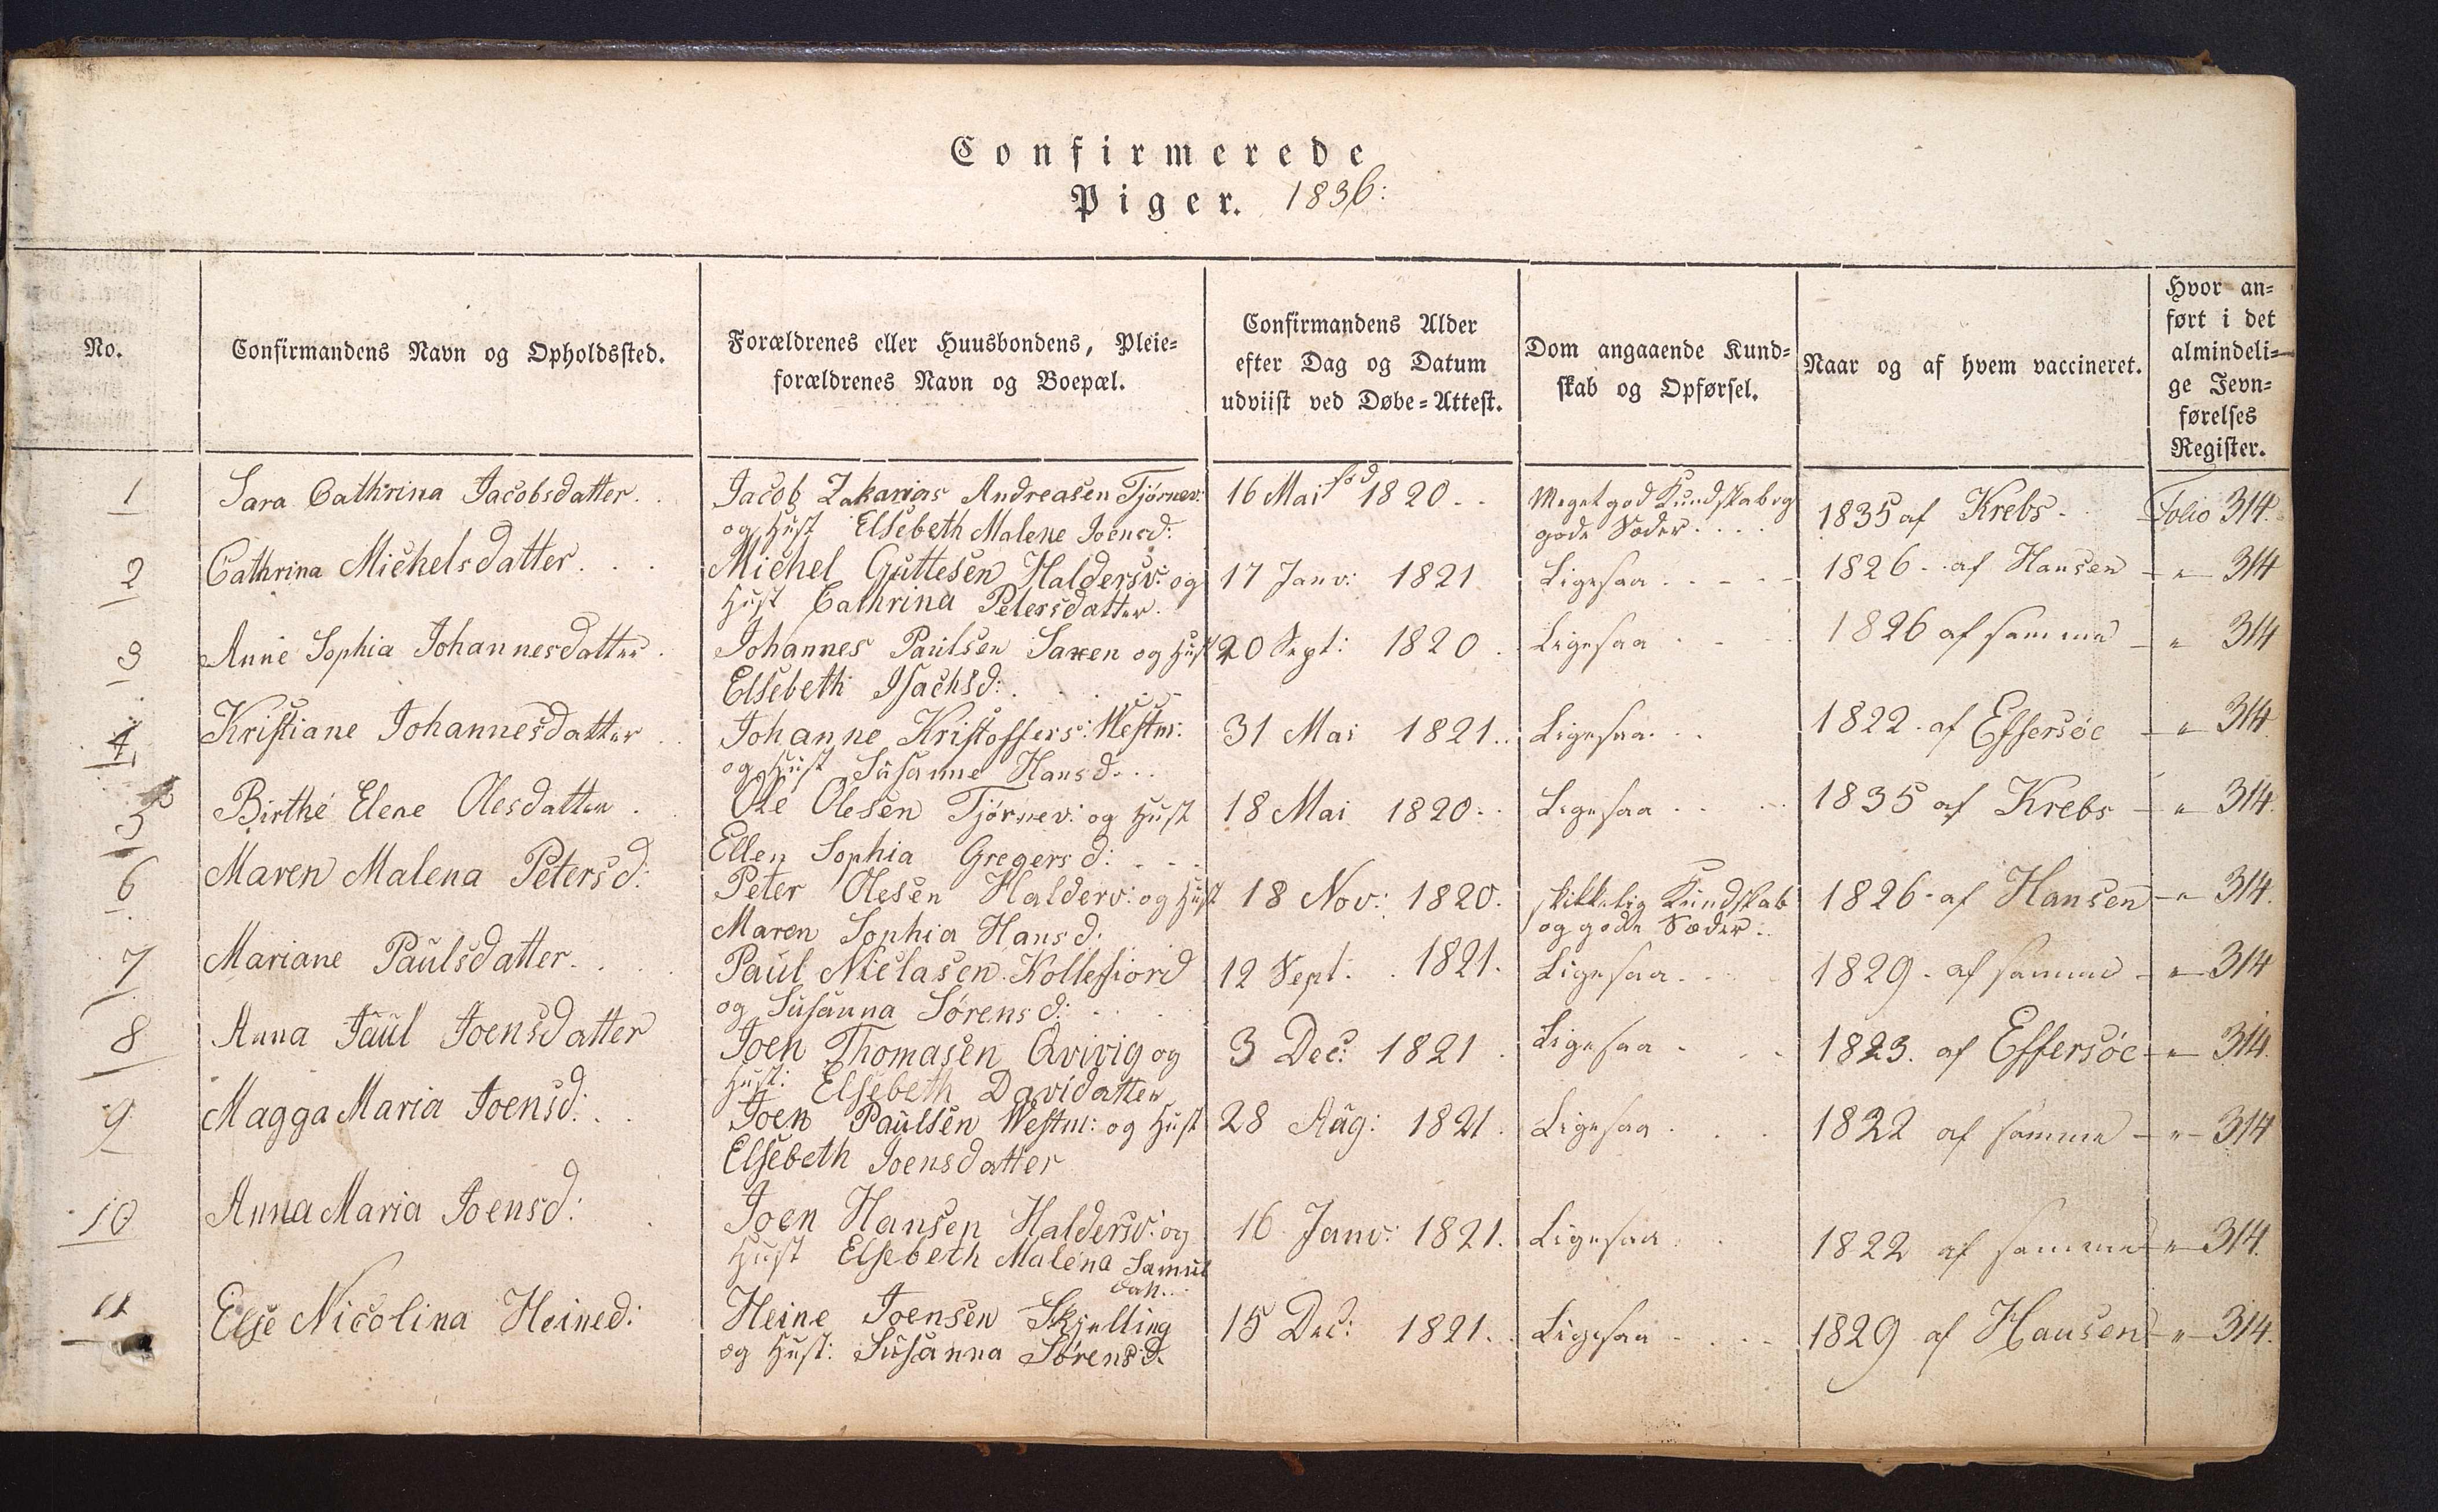 Confirmerede
Piger. 1836:
No.
Confirmandens Navn og Opholdssted.
Forældrenes eller Huusbondens, Pleie-
forældrenes Navn og Boepæl.
Confirmandens Alder
efter Dag og Datum
udviist ved Døbe-Attest.
Dom angaaende Kund-
skab og Opførsel.
Naar og af hvem vaccineret.
Hvor an-
ført i det
almindeli-
ge Jevn-
førelses
Register.
1 Sara Cathrina Jacobsdatter. Jacob Zakarias Andreasen Tjørnev: 16 Mai fød 1820 Meget god Kundskab og 1835 af Krebs Folio 314.
og Hust Elsebeth Malene Joensd: gode Sæder
2 Cathrina Michelsdatter Michel Guttesen Haldersv: og 17 Janv: 1821 Ligesaa 1826 af Hansen - " 314
Hust Cathrina Petersdatter.
3 Anne Sophia Johannesdatter Johannes Paulsen Saxen og Hust 20 Sept: 1820 Ligesaa 1826 af samme - " 314
Elsebeth Isachsd:
4 Kristiane Johannesdatter Johanne Kristoffers: Westm: 31 Mai 1821 Ligesaa 1822 af Effersöe - " 314
og Hust Susanne Hansd
5 Birthe Elene Olesdatter Ole Olesen Tjørnev: og Hust 18 Mai 1820 Ligesaa 1835 af Krebs - " 314.
Ellen Sophia Gregersd:
6 Maren Malena Petersd: Peter Olesen Halderv: og Hust 18 Nov: 1820. skikkelig Kundskab 1826 af Hansen - " 314.
Maren Sophia Hansd. og gode Sæder
7 Mariane Paulsdatter Paul Niclasen Kollefiord 12 Sept: 1821. Ligesaa 1829 af samme - " 314
og Susanna Sørensd:
8 Anna Paul Joensdatter Joen Thomasen Qvivig og 3 Dec: 1821 Ligesaa 1823. af Effersöe - " 314.
Hust: Elsebeth Davidatter
9 Magga Maria Joensd: Joen Paulsen Westm: og Hust 28 Aug: 1821 Ligesaa 1822 af samme - " 314
Elsebeth Joensdatter
10 Anna Maria Joensd: Joen Hansen Haldersv: og 16 Janv: 1821. Ligesaa 1822 af samme - " 314.
Hust Elsebeth Malena Samul
dat.
11 Else Nicolina Heined: Heine Joensen Skjelling 15 Dec: 1821. Ligesaa 1829 af Hansen - " 314.
og Hust: Susanna Sørensd.